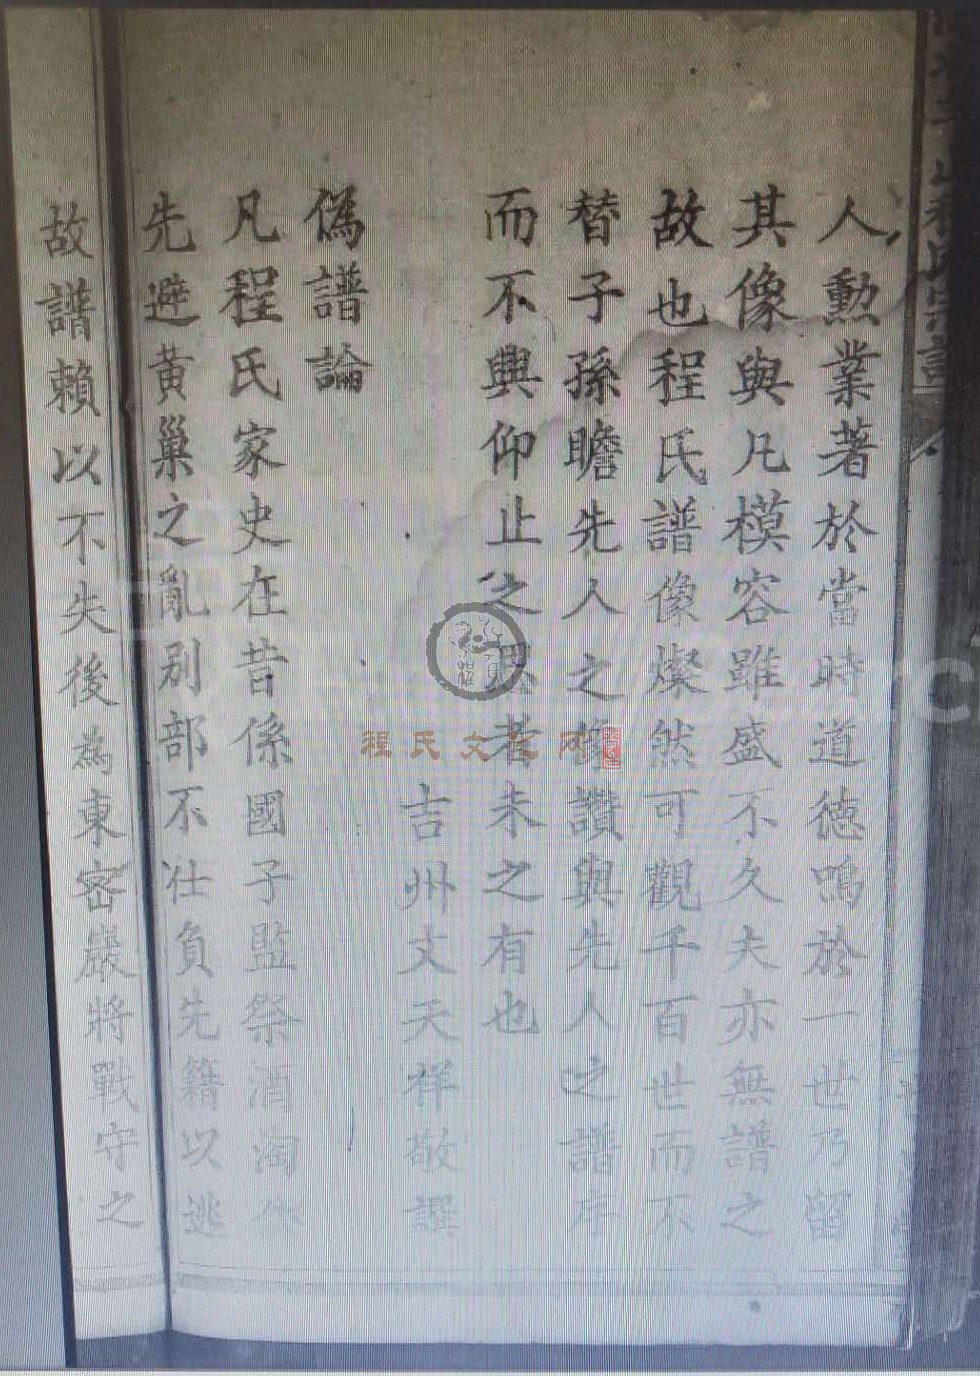 人勳業著於當時道德鳴於一世乃留
其像與凡模容雖盛不久夫亦無譜之
故也程氏譜像燦然可觀千百世而不
替子孫瞻先人之像讚與先人之譜序
而不興仰止之思者未之有也
吉州文天祥敬譔
偽譜論
凡程氏家史在昔係國子監祭酒淘
先避黃巢之亂別部不仕負先籍以逃
故譜賴以不失後為東密巖將戰守之
程氏文化网